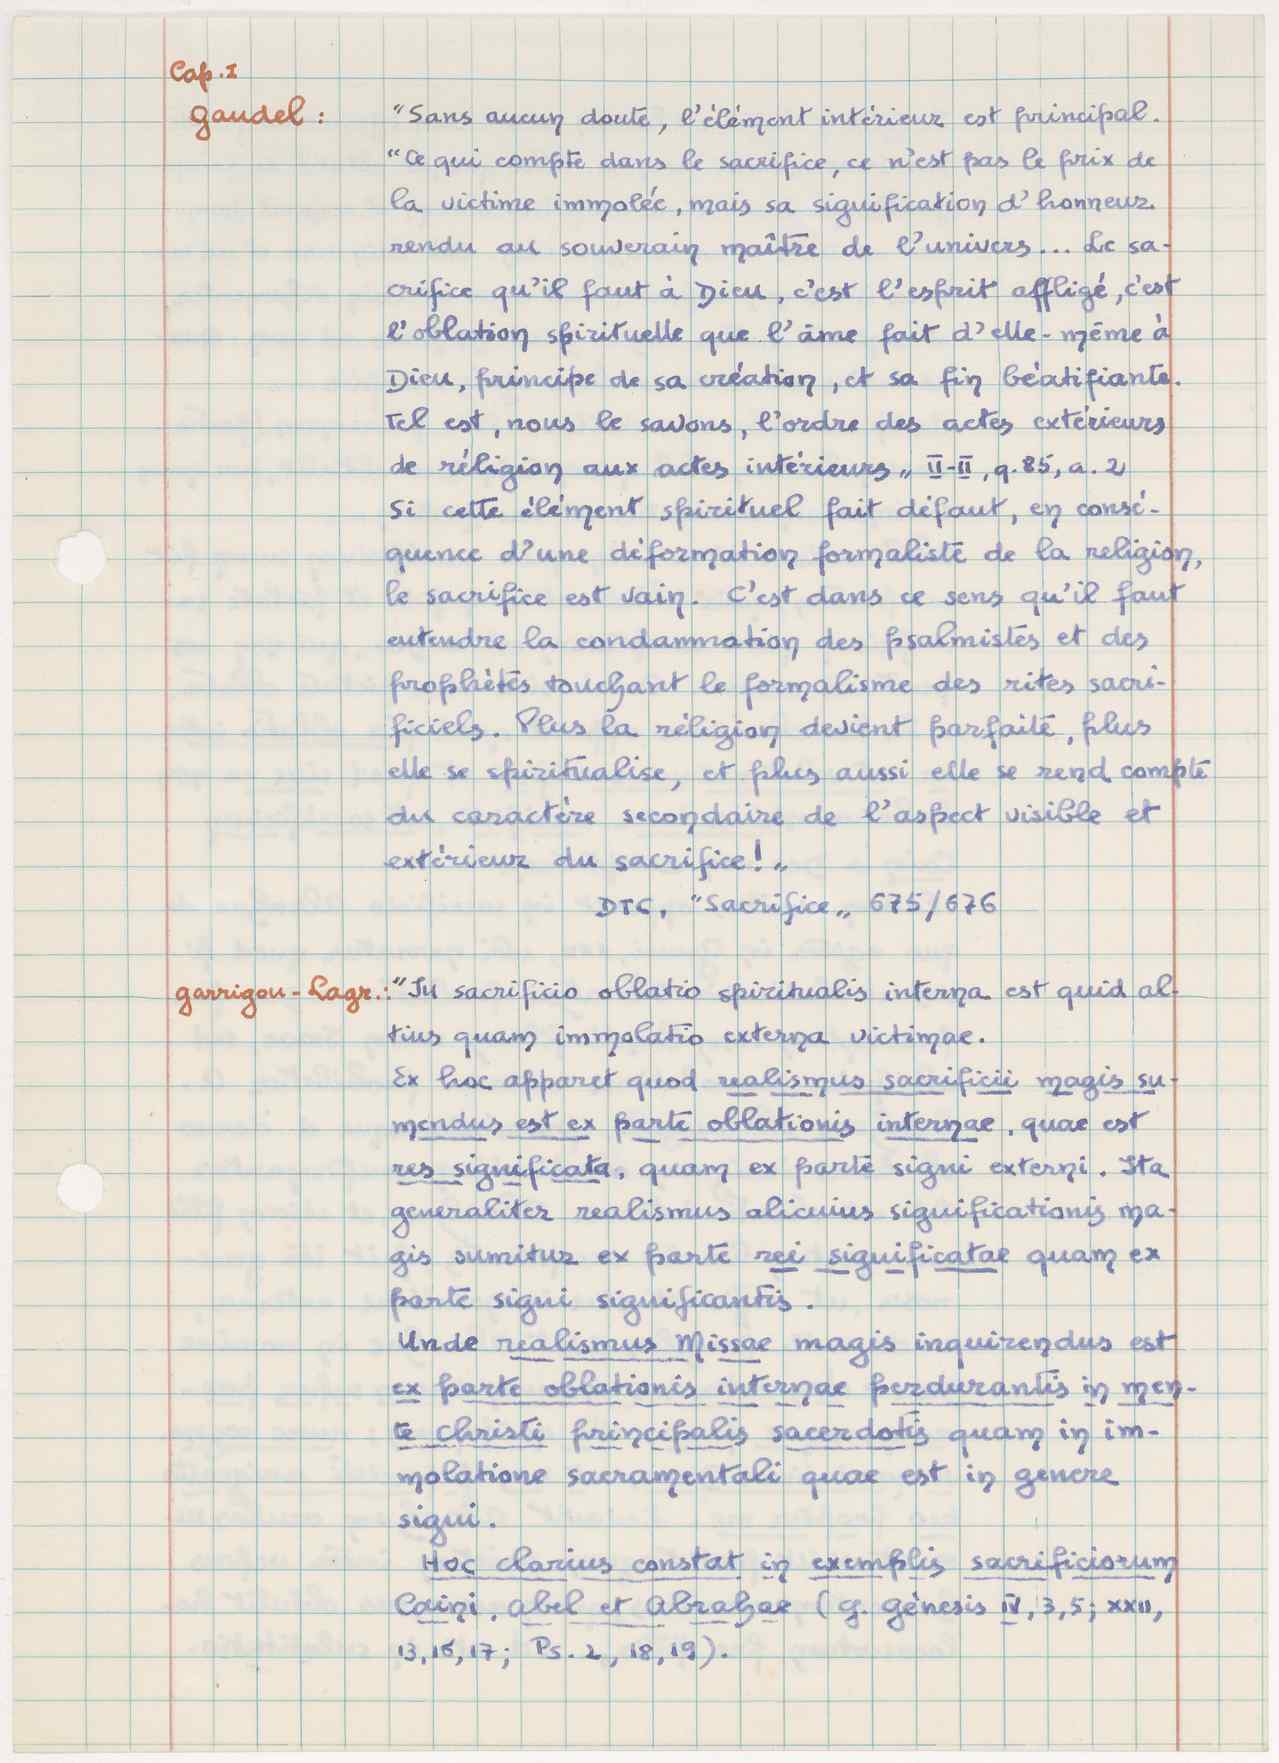 Cap. I
Gaudel : "Sans aucun doute, l'élément intérieur est principal.
"Ce qui compte dans le sacrifice, ce n'est pas le prix de
la victime immolée, mais sa signification d'honneur
rendu au souverain maître de l'univers... Le sa-
crifice qu'il faut à Dieu, c'est l'esprit affligé, c'est
l'oblation spirituelle que l'âme fait d'elle-même à
Dieu, principe de sa création, et sa fin béatifiante.
Tel est, nous le savons, l'ordre des actes extérieurs
de réligion aux actes intérieurs„ II-II, q. 85, a. 2
Si cette élément spirituel fait défaut, en consé-
quence d'une déformation formaliste de la religion,
le sacrifice est vain. C'est dans ce sens qu'il faut
entendre la condamnation des psalmistes et des
prophètes touchant le formalisme des rites sacri-
ficiels. Plus la réligion devient parfaite, plus
elle se spiritualise, et plus aussi elle se rend compte
du caractère secondaire de l'aspect visible et
extérieur du sacrifice!„
DTC, "Sacrifice„ 675/676
Garrigou-Lagr.: "In sacrificio oblatio spiritualis interna est quid al-
tius quam immolatio externa victimae.
Ex hoc apparet quod realismus sacrificii magis su-
mendus est ex parte oblationis internae, quae est
res significata, quam ex parte signi externi. Ita
generaliter realismus alicuius significationis ma-
gis sumitur ex parte rei significatae quam ex
parte signi significantis.
Unde realismus Missae magis inquirendus est
ex parte oblationis internae perdurantis in men-
te Christi principalis sacerdotis quam in im-
molatione sacramentali quae est in genere
signi.
Hoc clarius constat in exemplis sacrificiorum
Caini, Abel et Abrahae (g. génesis IV, 3, 5; XXII,
13, 16, 17; Ps. 2, 18, 19).